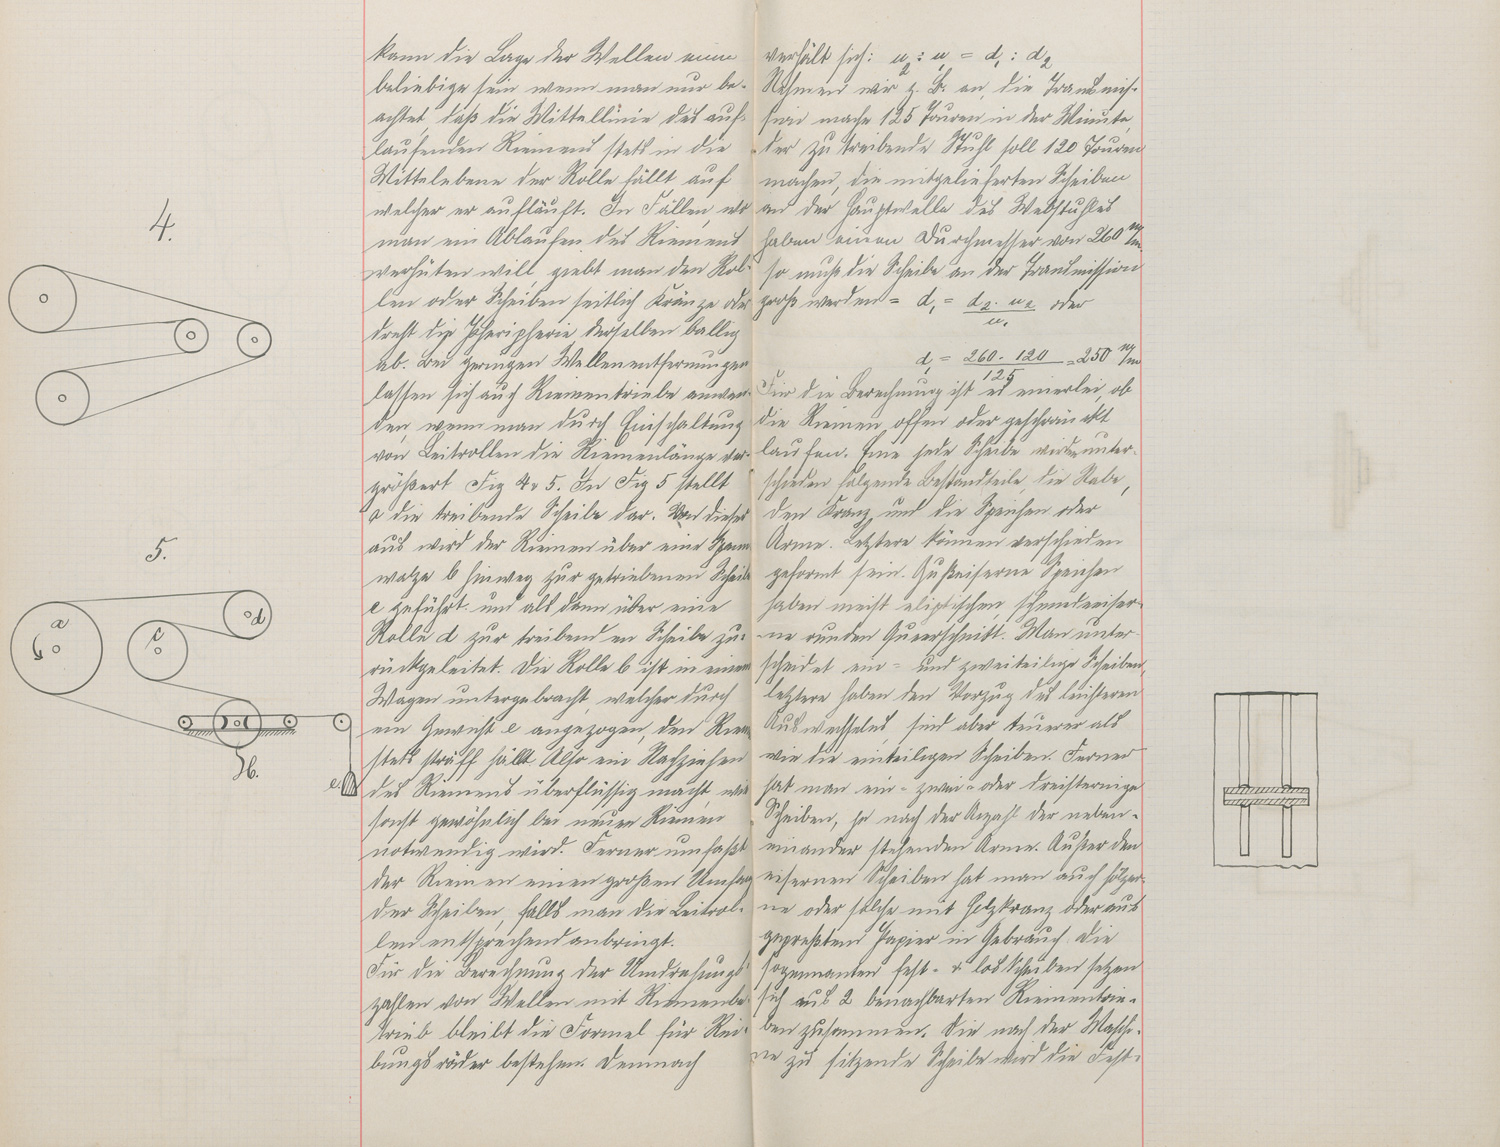 4.
5.
a
c
d
b.
e.
kann die Lage der Wellen eine
beliebige sein wenn man nur be-
achtet, daß die Mittellinie des auf-
laufenden Riemens stets in die
Mittelebene der Rolle fällt auf
welcher er aufläuft. In Fällen, wo
man ein Ablaufen des Riemens
verhüten will giebt man den Rol-
len oder Scheiben seitlich Kränze oder
dreht die Pheripherie derselben ballig
ab. Bei geringen Wellenentfernungen
lassen sich auch Riementriebe anwen-
den, wenn man durch Einschaltung
von Leitrollen die Riemenlänge ver-
größert Fig 4 & 5. In Fig 5 stellt
a die treibende Scheibe dar. Von dieser
aus wird der Riemen über eine Spann
walze b hinweg zur getriebenen Scheibe
c geführt und als dann über eine
Rolle d zur treibenden Scheibe zu-
rückgeleitet. Die Rolle b ist in einem
Wagen untergebracht, welcher durch
ein Gewicht e angezogen, den Riemen
stets straff hält Also ein Nachziehen
des Riemens überflüssig macht, wie
sonst gewöhnlich bei neuen Riemen
notwendig wird. Ferner umfaßt
der Riemen einen großen Umfang
der Scheiben, falls man die Leitrol-
len entsprechend anbringt.
Für die Berechnung der Umdrehungs
zahlen von Wellen mit Riemenbe-
trieb bleibt die Formel für Rei-
bungsräder bestehen. Demnach
verhält sich: u2 : u, = d, : d2
Nehmen wir z. B. an, die Transmis-
sion mache 125 Touren in der Minute,
der zu treibende Stuhl soll 120 Touren
machen, die mitgelieferten Scheiben
an der Hauptwelle des Webstuhles
haben einen Durchmesser von 260 m/m
so muß die Scheibe an der Transmission
groß werden = d, = d2. u2 / u, oder
d, = 260. 120 / 125 = 250 m/m
Für die Berechnung ist es einerlei, ob
die Riemen offen oder geschränkt
laufen. Eine jede Scheibe werden unter-
schieden folgende Bestandteile, die Nabe,
den Kranz, und die Speichen oder
Arme. Letztere können verschieden
geformt sein. Gußeiserne Speichen
haben meist eliptischen, schmiedeiser-
ne runden Queerschnitt. Man unter-
scheidet ein- und zweiteilige Scheiben,
letztere haben den Vorzug des leichteren
Auswechselns, sind aber teuerer als
wie die einteiligen Scheiben. Ferner
hat man ein- zwei- oder dreisternige
Scheiben, je nach der Anzahl der neben-
einander stehenden Arme. Außer den
eisernen Scheiben hat man auch hölzer-
ne oder solche mit Holzkranz oder aus
gepreßtem Papier in Gebrauch. Die
sogenannten fest- & los Scheiben setzen
sich aus 2 benachbarten Riementrie-
ben zusammen. Die nach der Maschi-
ne zu sitzende Scheibe wird die Fest-